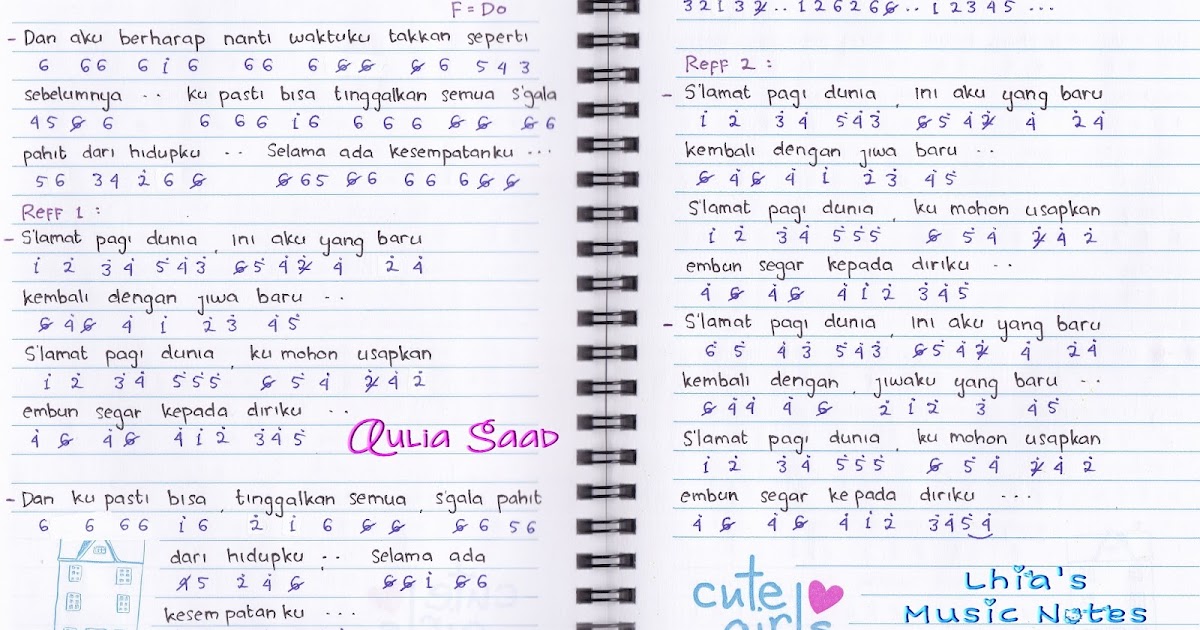 F = Do
- Dan aku berharap nanti waktuku takkan seperti
6 6 6 6 i 6 6 6 6 6 6 6 6 5 4 3
sebelumnya .. ku pasti bisa tinggalkan semua s'gala
4 5 6 6 6 6 6 i 6 6 6 6 6 6 6 6
pahit dari hidupku .. Selama ada kesempatanku ...
5 6 3 4 2 6 6 6 6 5 6 6 6 6 6 6 6
Reff 1 :
- S'lamat pagi dunia, ini aku yang baru
i 2 3 4 5 4 3 6 5 4 2 4 2 4
kembali dengan jiwa baru ..
6 4 6 4 i 2 3 4 5
S'lamat pagi dunia, ku mohon usapkan
i 2 3 4 5 5 5 6 5 4 2 4 2
embun segar kepada diriku ..
4 6 4 6 4 i 2 3 4 5
Aulia Saad
- Dan ku pasti bisa, tinggalkan semua, s'gala pahit
6 6 6 6 i 6 2 i 6 6 6 6 6 5 6
dari hidupku .. Selama ada
4 5 2 4 6 6 6 i 6 6
kesempatanku ...
3 2 1 3 2 .. 1 2 6 2 6 6 .. i 2 3 4 5 ...
Reff 2 :
- S'lamat pagi dunia, ini aku yang baru
i 2 3 4 5 4 3 6 5 4 2 4 2 4
kembali dengan jiwa baru ..
6 4 6 4 i 2 3 4 5
S'lamat pagi dunia, ku mohon usapkan
i 2 3 4 5 5 5 6 5 4 2 4 2
embun segar kepada diriku ..
4 6 4 6 4 i 2 3 4 5
- S'lamat pagi dunia, ini aku yang baru
6 5 4 3 5 4 3 6 5 4 2 4 2 4
kembali dengan, jiwaku yang baru ..
6 4 4 4 6 2 i 2 3 4 5
S'lamat pagi dunia, ku mohon usapkan
i 2 3 4 5 5 5 6 5 4 2 4 2
embun segar kepada diriku ...
4 6 4 6 4 i 2 3 4 5 4
cute girls
Lhia's
Music Notes